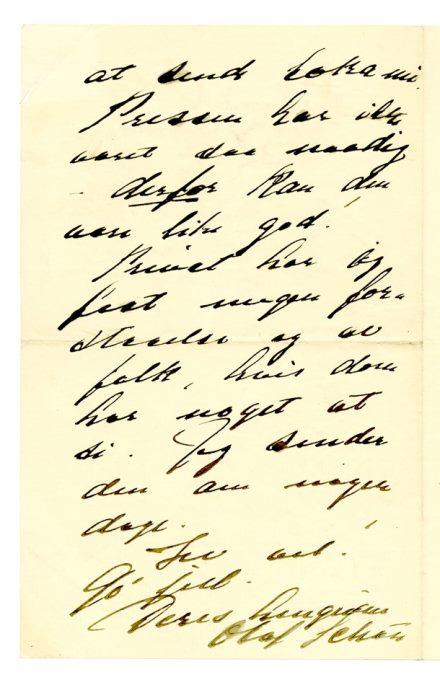 at send
Pressen har ikke
været saa naadig
- derfor kan den
være like god!
Privat har jeg
faat megen for-
staaelse og av
folk, hvis dom
har noget at
si. Jeg sender
den om nogen
dage.
Lev vel!
God jul.
Deres hengivne
Olaf